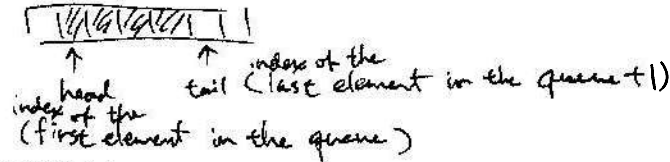 head
tail
index of the
(last element in the queue +1)
index of the
(first element in the queue)